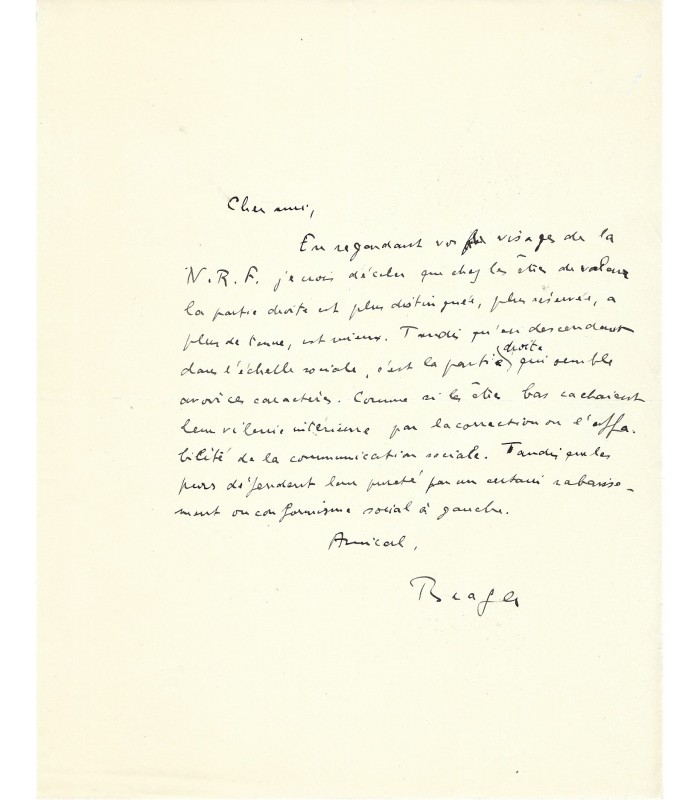 Cher ami,
En regardant vos visages de la
N.R.F. je crois déceler que chez les êtres de valeur
la partie droite est plus distinguée, plus réservée, a
plus de tenue, est mieux. Tandis qu'en descendant
dans l'échelle sociale, c'est la partie droite qui semble
avoir ces caractères. Comme si les êtres bas cachaient
leur vilenie intérieure par la correction ou l'affa-
bilité de la communication sociale. Tandis que les
purs défendent leur pureté par un certain rabaisse-
ment ou conformisme social à gauche.
Amical,